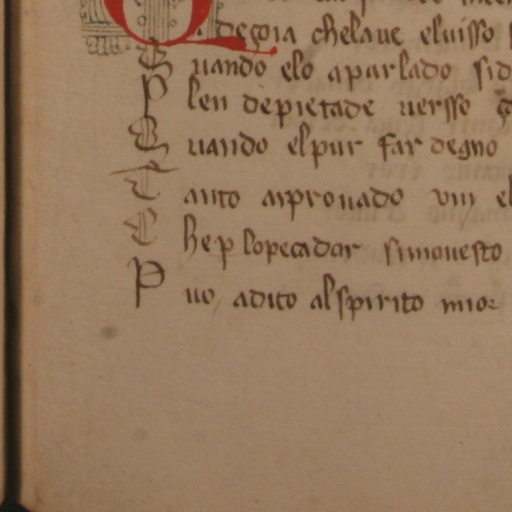 degoia chelaue eluisso
Quando elo aparlado sid
Plen depietade uersso
Quando elpur far degno
Tanto aiprouado uui el
Che p lopecador simouesto
Puo, adito alspirito mior